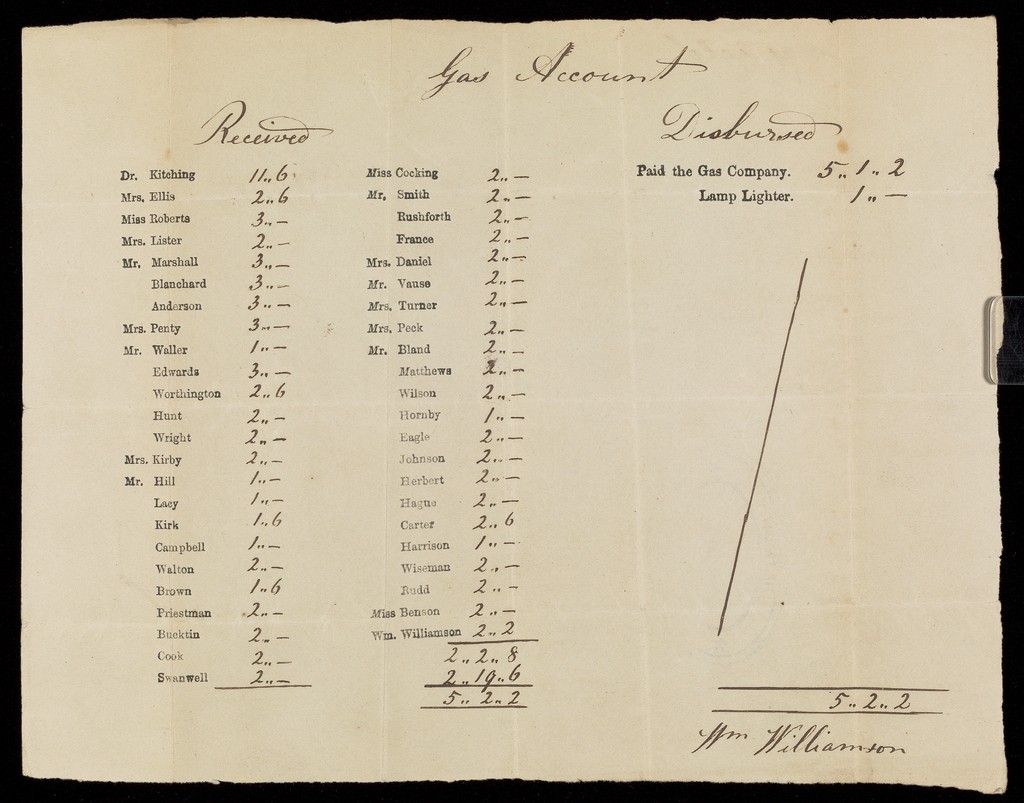 Gas Account
Received
Dr. Kitching 11,,6
Mrs. Ellis 2,,6
Miss Roberts 3,,—
Mrs. Lister 2,,—
Mr. Marshall 3,,—
Blanchard 3,,—
Anderson 3,,—
Mrs. Penty 3,,—
Mr. Waller 1,,—
Edwards 3,,—
Worthington 2,,6
Hunt 2,,—
Wright 2,,—
Mrs. Kirby 2,,—
Mr. Hill 1,,—
Lacy 1,,—
Kirk 1,,6
Campbell 1,,—
Walton 2,,—
Brown 1,,6
Priestman 2,,—
Bucktin 2,,—
Cook 2,,—
Swanwell 2,,—
Miss Cocking 2,,—
Mr. Smith 2,,—
Rushforth 2,,—
France 2,,—
Mrs. Daniel 2,,—
Mr. Vause 2,,—
Mrs. Turner 2,,—
Mrs. Peck 2,,—
Mr. Bland 2,,—
Matthews 2,,—
Wilson 2,,—
Hornby 1,,—
Eagle 2,,—
Johnson 2,,—
Herbert 2,,—
Hague 2,,—
Carter 2,,6
Harrison 1,,—
Wiseman 2,,—
Rudd 2,,—
Miss Benson 2,,—
Wm. Williamson 2,,2
2,,2,,8
2,,19,,6
5,,2,,2
Disbursed
Paid the Gas Company. 5,,1,,2
Lamp Lighter. 1,,—
5,,2,,2
Wm Williamson